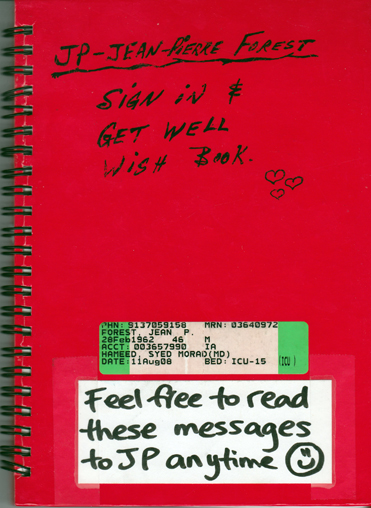 JP-JEAN-PIERRE FOREST
SIGN IN &
GET WELL
WISH BOOK.
PHN: 9137059158 MRN: 03640972
FOREST, JEAN P.
28Feb1962 46 M
ACCT: 003657990 IA
HAMEED, SYED MORAD(MD)
DATE: 11Aug08 BED: ICU-15 (ICU )
Feel free to read
these messages
to JP anytime